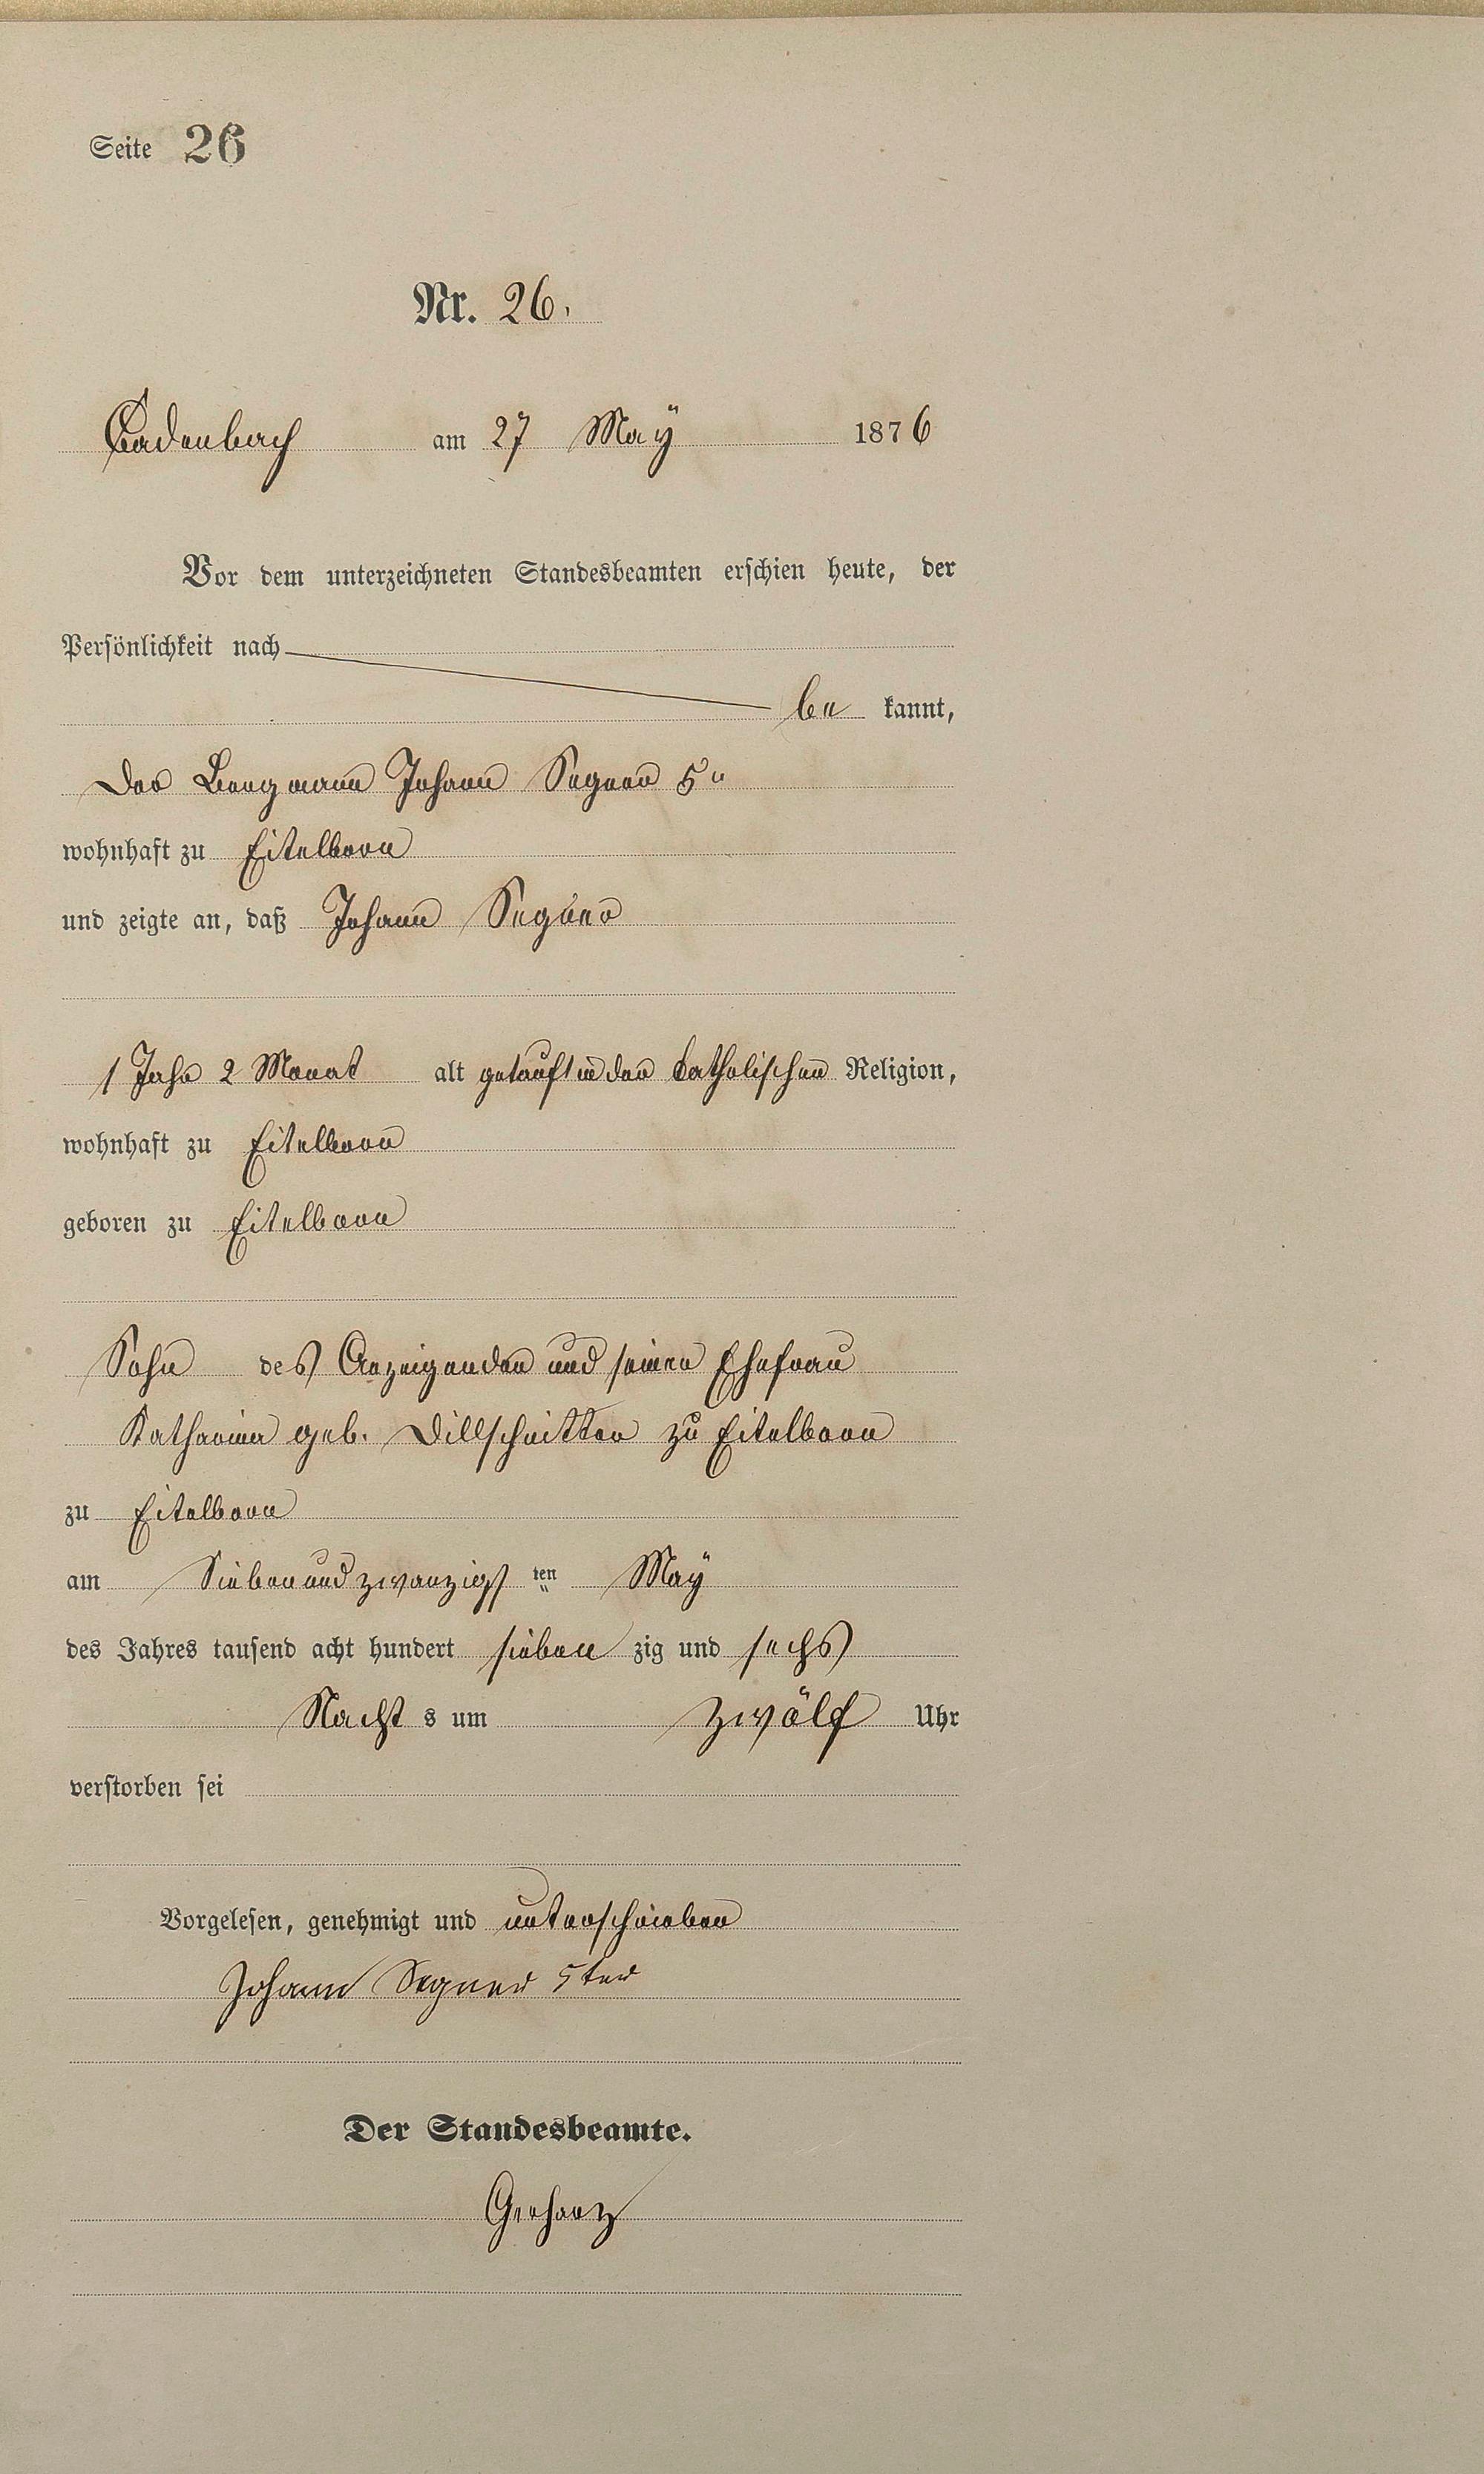 Seite 26
Nr. 26.
Cadenbach am 27 Maÿ 1876
Vor dem unterzeichneten Standesbeamten erschien heute, der
Persönlichkeit nach
be kannt,
Der Bergmann Johann Segner 5"
wohnhaft zu Eitelborn
und zeigte an, daß Johann Segner
1 Jahr 2 Monat alt getauft in der katholischen Religion,
wohnhaft zu Eitelborn
geboren zu Eitelborn
Sohn des Anzeigenden und seiner Ehefrau
Katharina geb. Dillschnitter zu Eitelborn
zu Eitelborn
am Siebenundzwanzigsten Maÿ
des Jahres tausend acht hundert sieben zig und sechs
Nacht s um zwölf Uhr
verstorben sei
Vorgelesen, genehmigt und unterschrieben
Johann Segner 5ter
Der Standesbeamte.
Gerharz